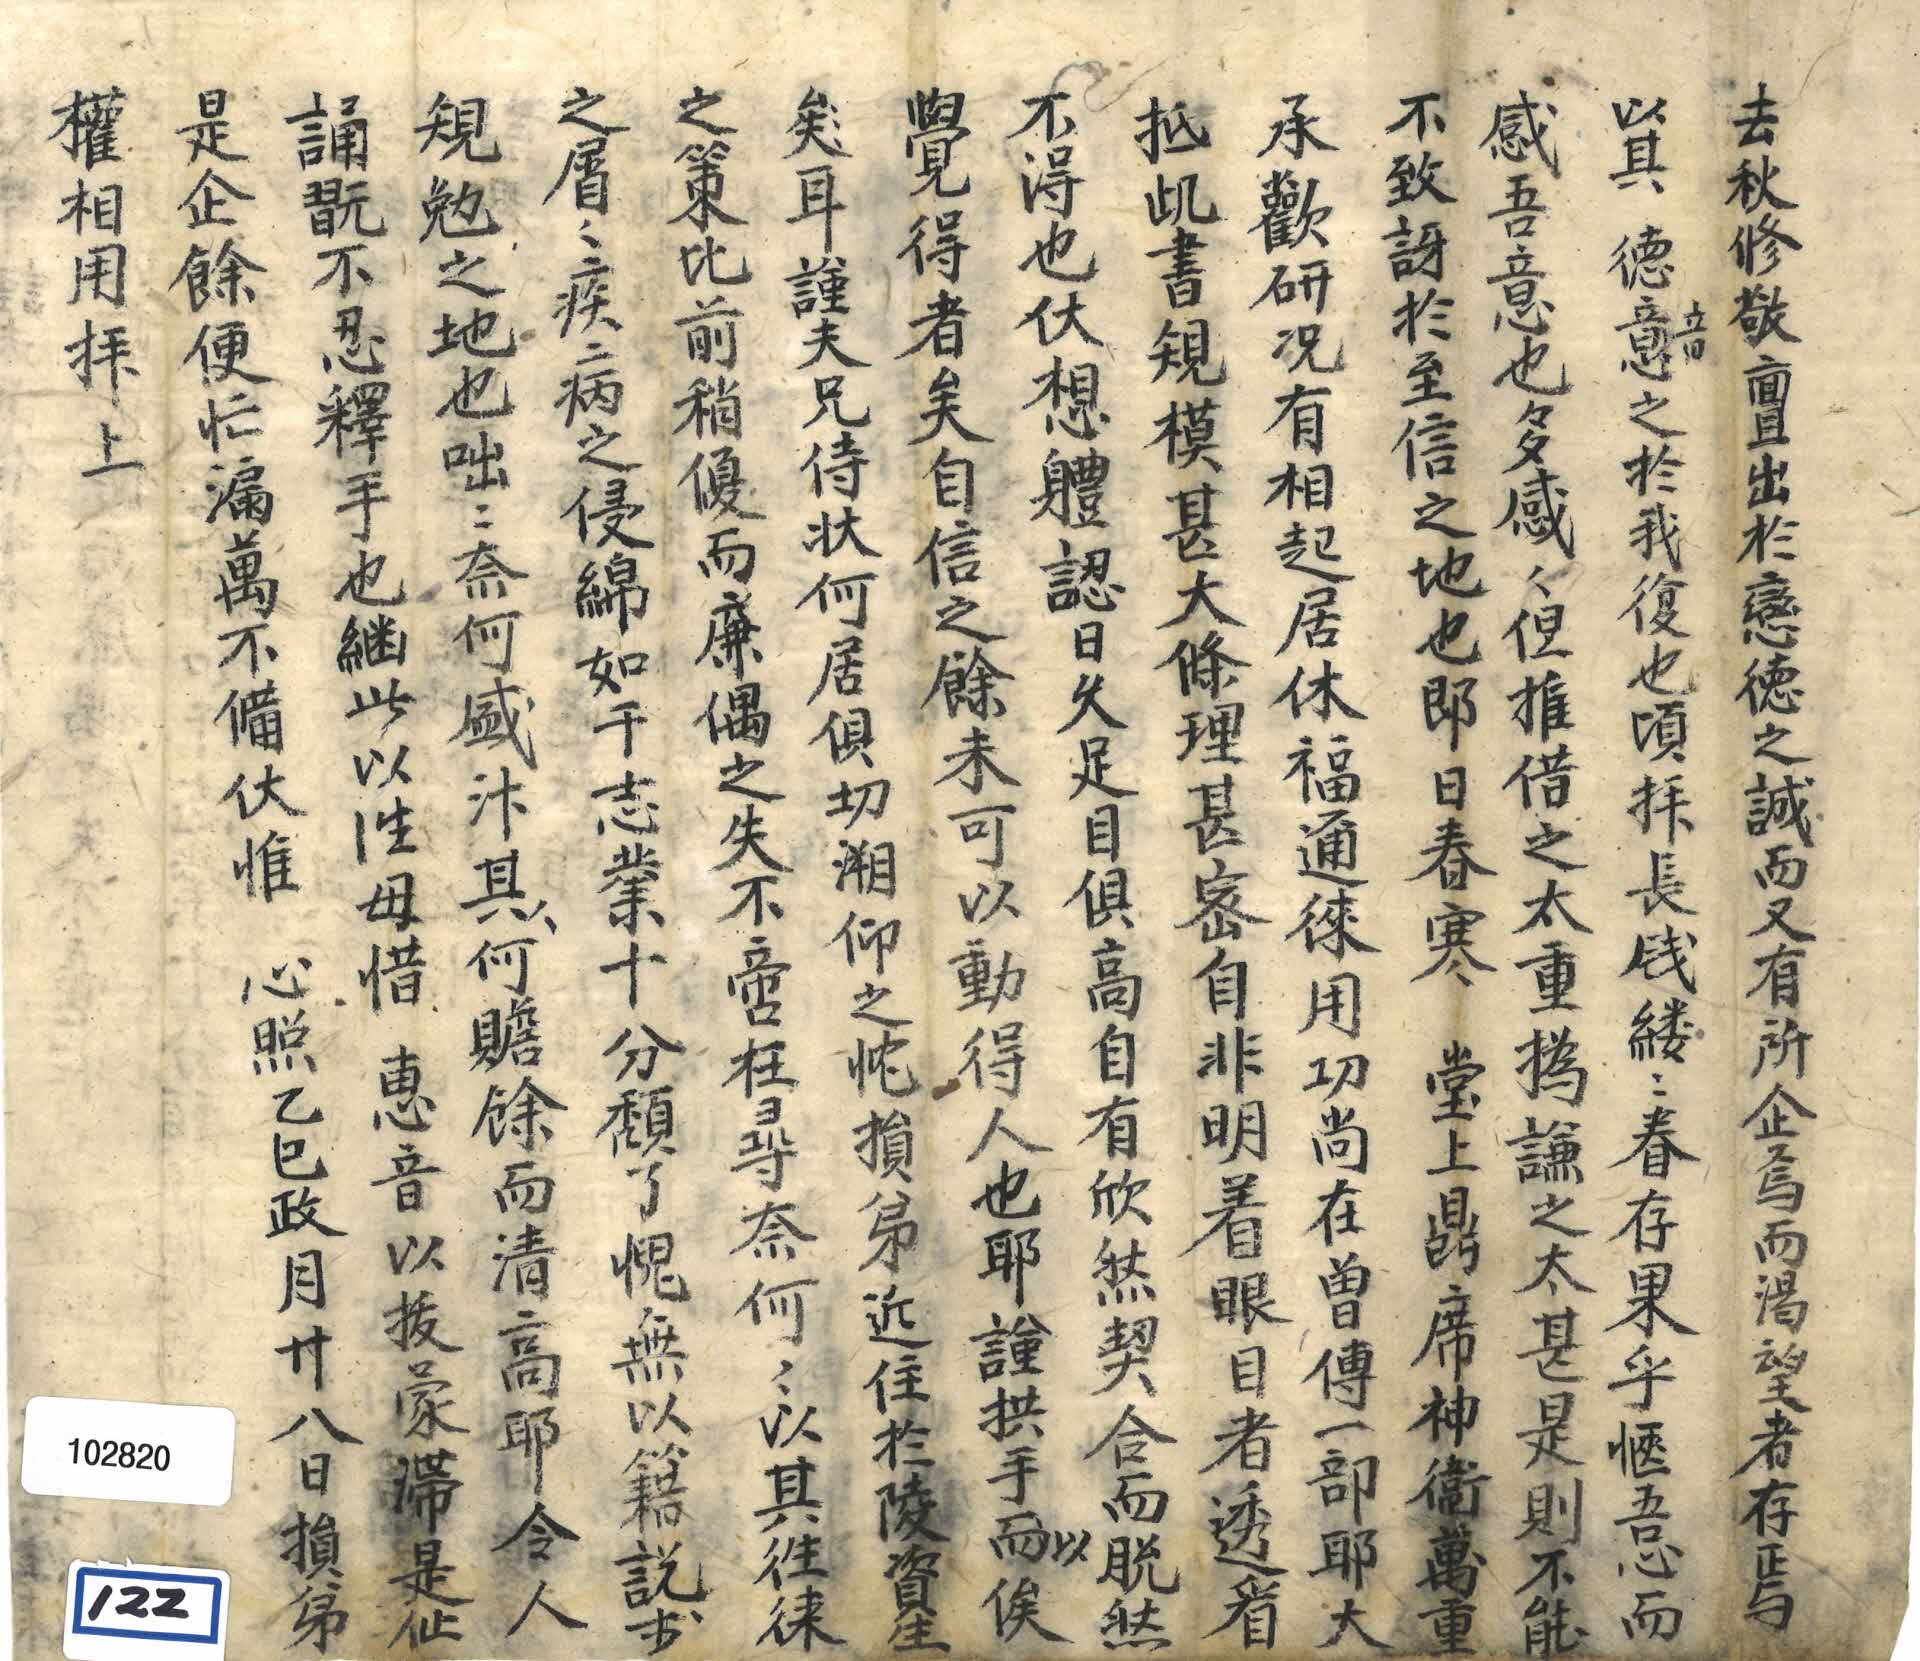 去秋修敬亶出於戀德之誠而又有所企焉而渴望者存焉
以其 德意音之於我復也頃拜長牋縷〻春存果乎愜吾心而
感吾意也多感〻但推借之太重撝謙之太甚是則不能
不致訝於至信之地也即日春寒 堂上鼎席神衛萬重
承歡研况有相起居休福通徠用功尚在曾傳一部耶大
抵此書規模甚大條理甚密自非明着眼目者透看
不淂也伏想軆認日久足目俱高自有欣然契合而脱然
覺得者矣自信之餘未可以動得人也耶謹拱手而以俟
矣耳謹夫兄侍狀何居俱切溯仰之忱損弟近住於陵資生
之策比前稍優而廉偶之失不啻枉尋奈何〻以其徃徠
之屑〻疾〻病之侵綿如干志業十分頹了愧無以籍説於
規勉之地也咄〻奈何盛汴其〻何贍餘而清高耶令人
誦翫不忍釋手也継此以徃毋惜 惠音以拨蒙滯是企
是企餘便忙漏萬不備伏惟 心照乙巳政月廿八日損弟
權相用拜上
102820
122